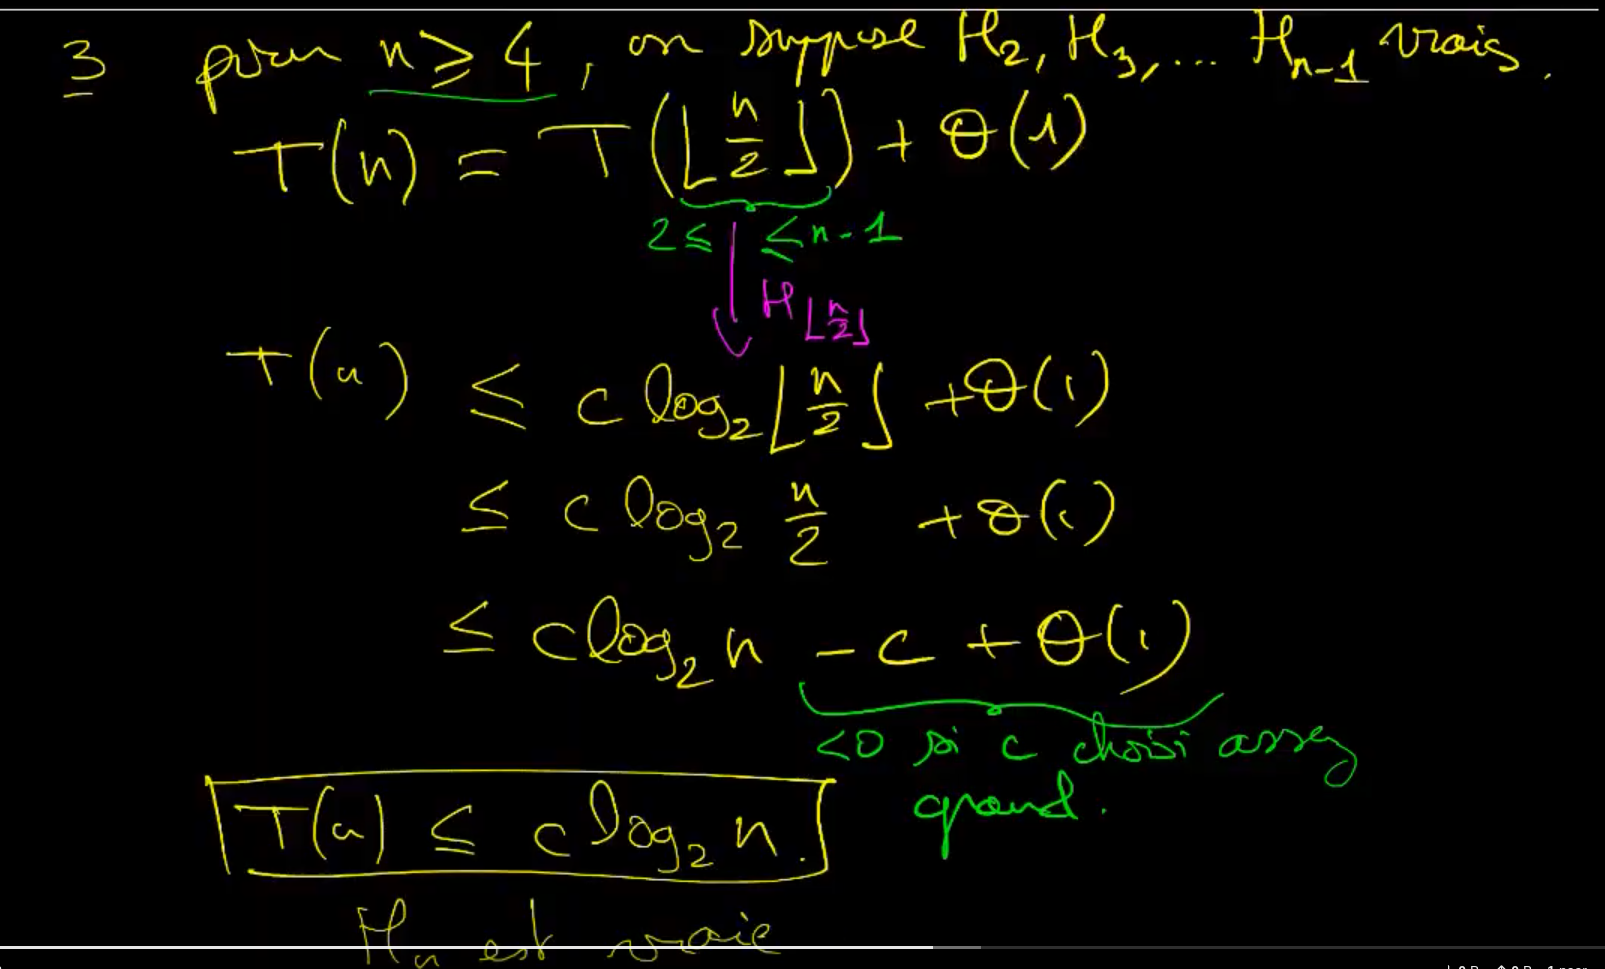 3 pour n ≥ 4, on suppose H₂, H₃, ... Hₙ₋₁ vrais.
T(n) = T(⌊n/2⌋) + Θ(1)
2 ≤ ≤ n-1
H⌊n/2⌋
T(n) ≤ c log₂ ⌊n/2⌋ + Θ(1)
≤ c log₂ n/2 + Θ(1)
≤ c log₂ n - c + Θ(1)
<0 si c choisi assez
grand.
T(n) ≤ c log₂ n.
Hₙ est vraie